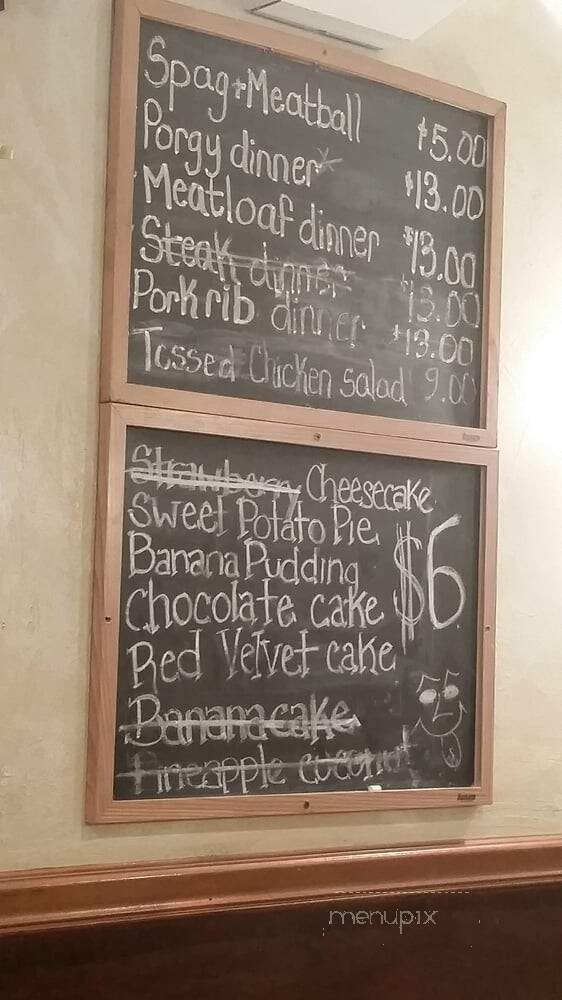 Spag+Meatball $5.00
Porgy dinner* $13.00
Meatloaf dinner $13.00
Steak dinner $13.00
Pork rib dinner $13.00
Tossed Chicken salad 9.00
Strawberry Cheesecake
Sweet Potato Pie
Banana Pudding
Chocolate cake $6
Red Velvet cake
Banana cake
Pineapple coconut
menupix